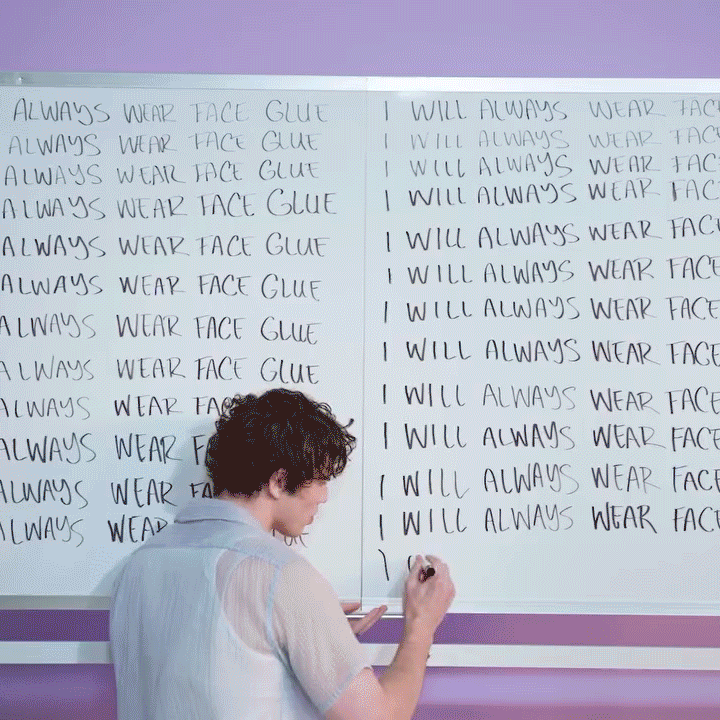 ALWAYS WEAR FACE GLUE
ALWAYS WEAR FACE GLUE
ALWAYS WEAR FACE GLUE
ALWAYS WEAR FACE GLUE
ALWAYS WEAR FACE GLUE
ALWAYS WEAR FACE GLUE
ALWAYS WEAR FACE GLUE
ALWAYS WEAR FACE GLUE
ALWAYS WEAR
ALWAYS WEAR
ALWAYS WEAR
ALWAYS
I WILL ALWAYS WEAR FAC
I WILL ALWAYS WEAR FAC
I WILL ALWAYS WEAR FAC
I WILL ALWAYS WEAR FAC
I WILL ALWAYS WEAR FACE
I WILL ALWAYS WEAR FACE
I WILL ALWAYS WEAR FACE
I WILL ALWAYS WEAR FACE
I WILL ALWAYS WEAR FACE
I WILL ALWAYS WEAR FACE
I WILL ALWAYS WEAR FACE
I WILL ALWAYS WEAR FACE
I